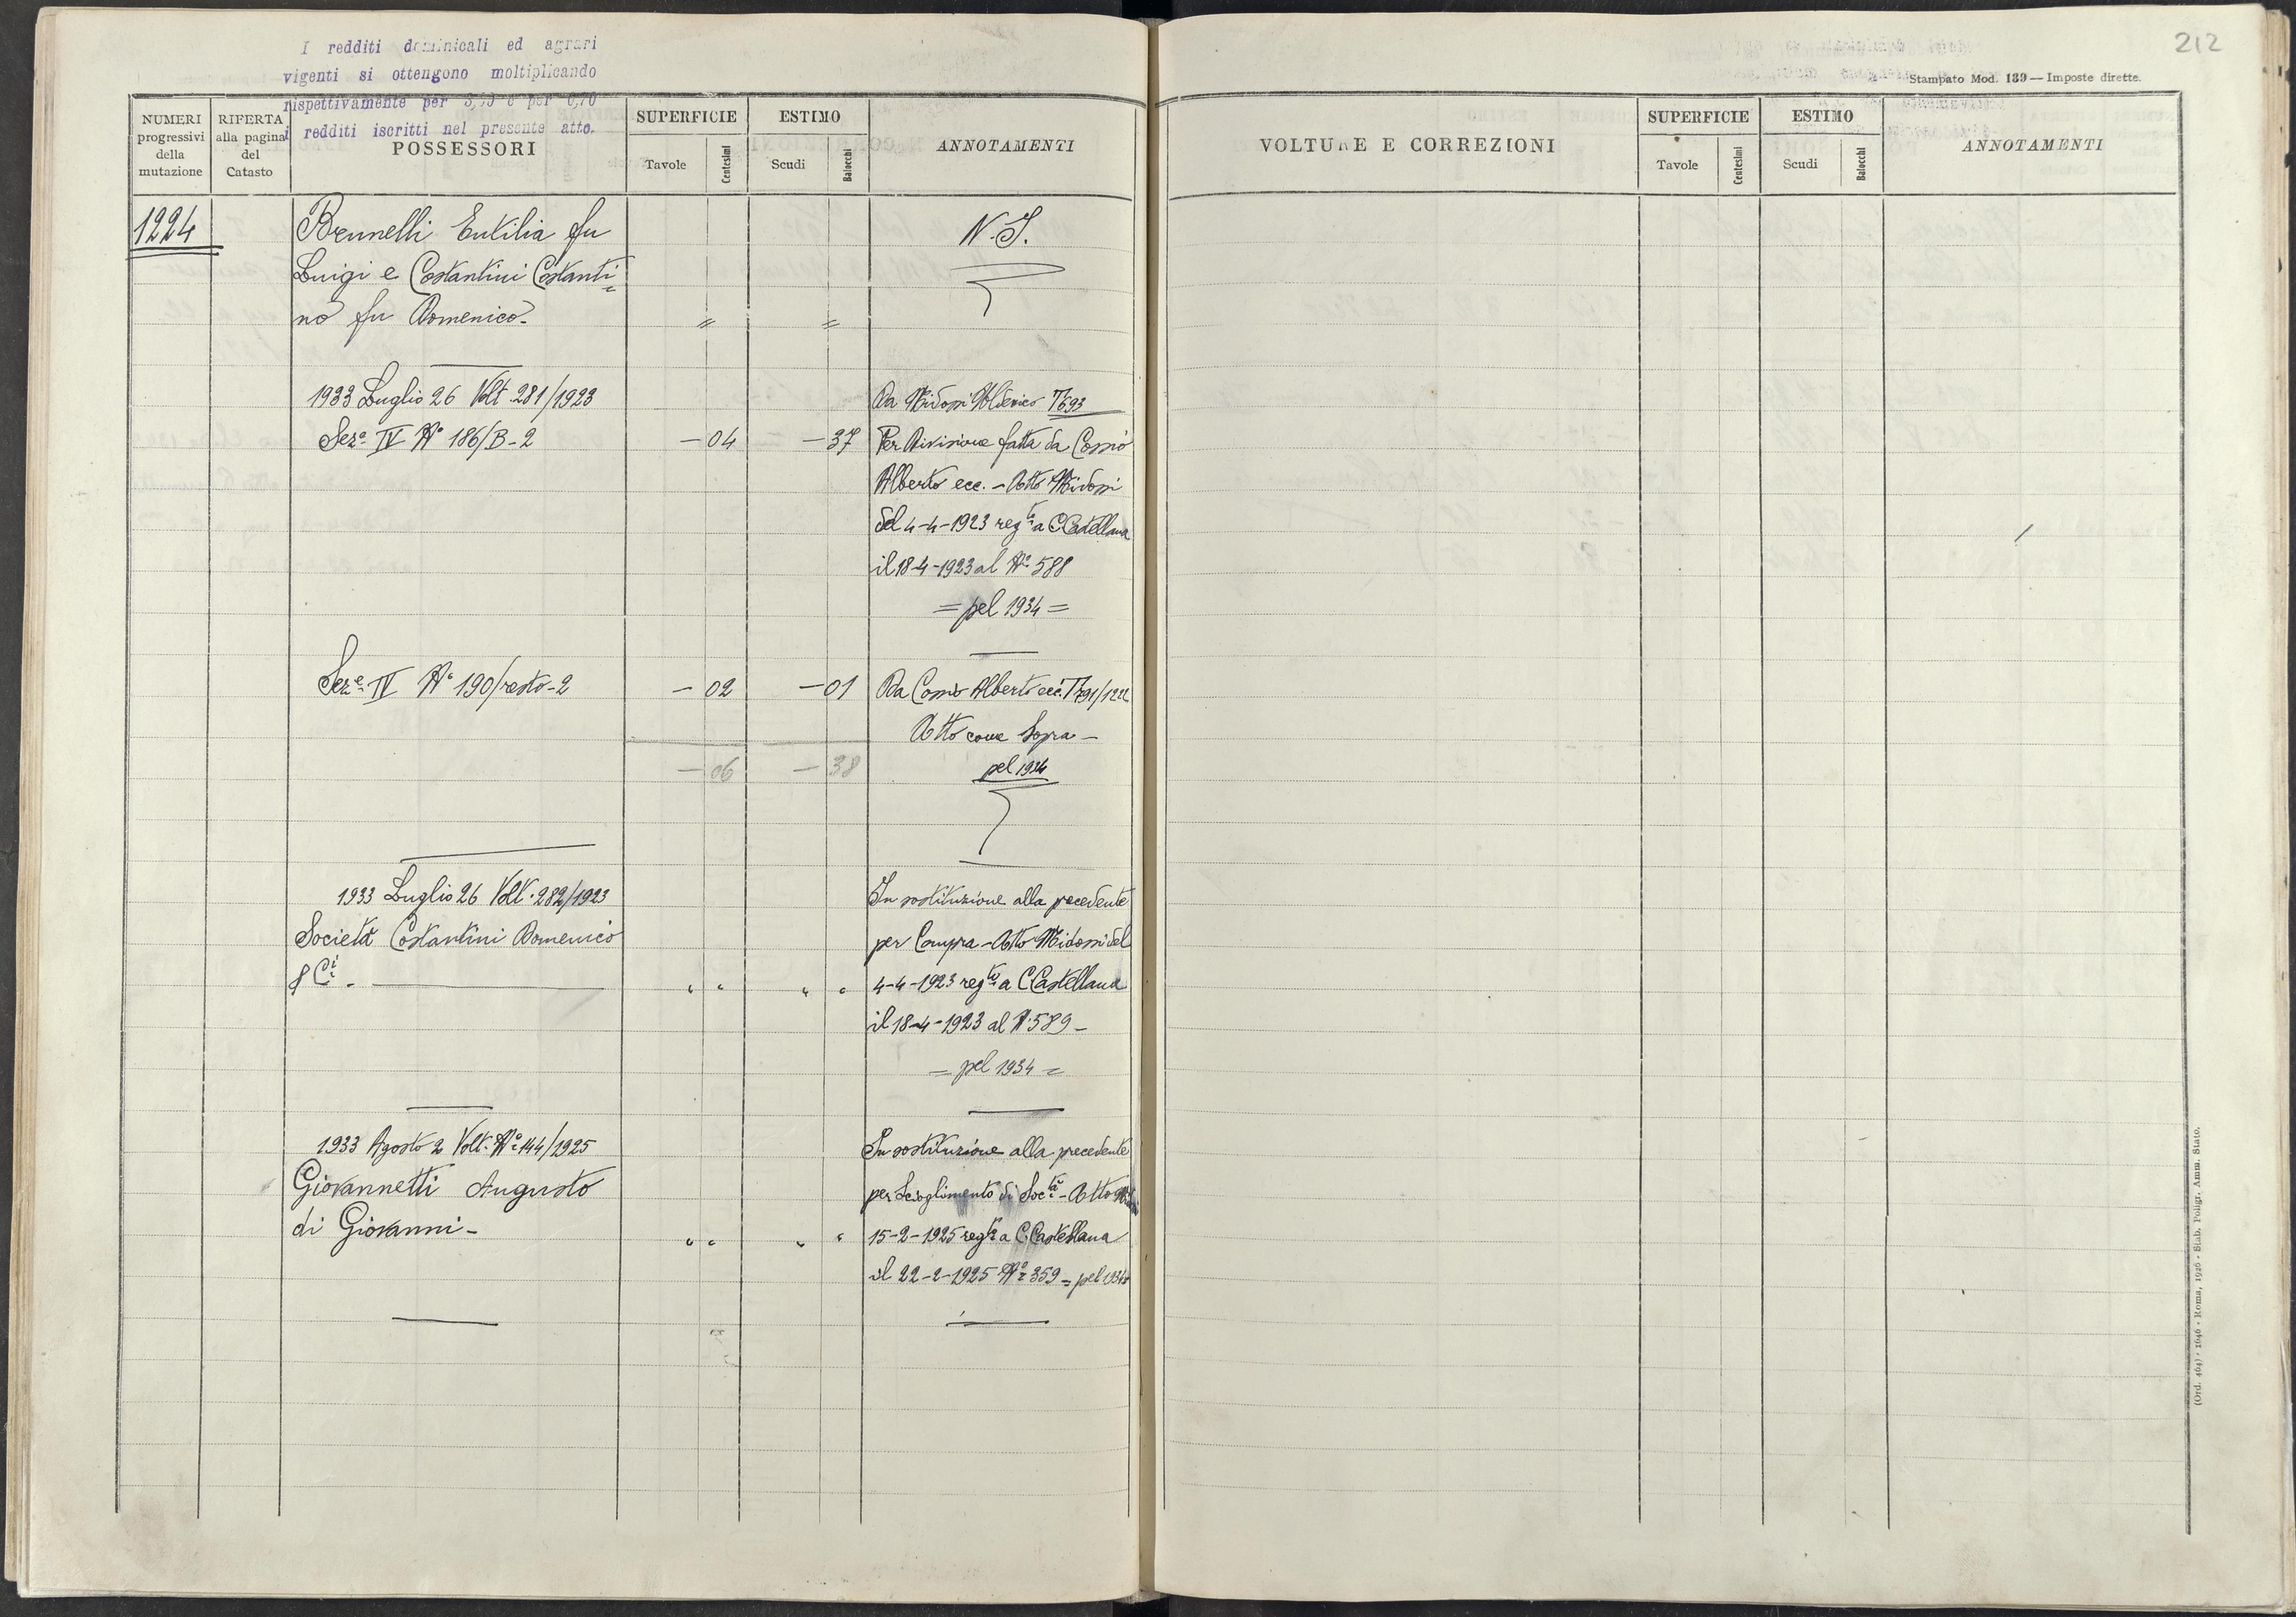 I redditi dominicali ed agrari
vigenti si ottengono moltiplicando
rispettivamente per 3,35 e per 0,70
i redditi iscritti nel presente atto.
NUMERI progressivi della mutazione
RIFERTA alla pagina del Catasto
POSSESSORI
SUPERFICIE
Tavole
Centesimi
ESTIMO
Scudi
Baiocchi
ANNOTAMENTI
1224
Brunelli Eutilia fu
N.I.
Luigi e Costantini Costanti=
no fu Domenico -
1933 Luglio 26 Volt. 281/1923
Da Midossi Ulderico 7693
Sez.e IV N° 186/B-2 — 04 — 37 Per Divisione fatta da Cossio
Alberto ecc. - Atto Midossi
del 4-4-1923 reg.to a C.Castellana
il 18-4-1923 al N° 588
= pel 1934 =
Sez.e IV N° 190/resto-2 — 02 — 01 Da Cossio Alberto ecc.
Atto come Sopra -
— 06 — 38 pel 1934
1933 Luglio 26 Volt. 282/1923
In sostituzione alla precedente
Società Costantini Domenico
per Compra - Atto Midossi del
& C.i - " " " " 4-4-1923 reg.to a C.Castellana
il 18-4-1923 al N. 589 -
= pel 1934 =
1933 Agosto 2 Volt. N° 144/1925
In sostituzione alla precedente
Giovannetti Augusto
per Scioglimento di Soc.tà - Atto
di Giovanni - " " " " 15-2-1925 reg.to a C.Castellana
il 22-2-1925 N° 359 = pel 1934
212
Stampato Mod. 139 — Imposte dirette.
VOLTURE E CORREZIONI
SUPERFICIE
Tavole
Centesimi
ESTIMO
Scudi
Baiocchi
ANNOTAMENTI
(Ord. 464) - 1646 - Roma, 1926 - Stab. Poligr. Amm. Stato.